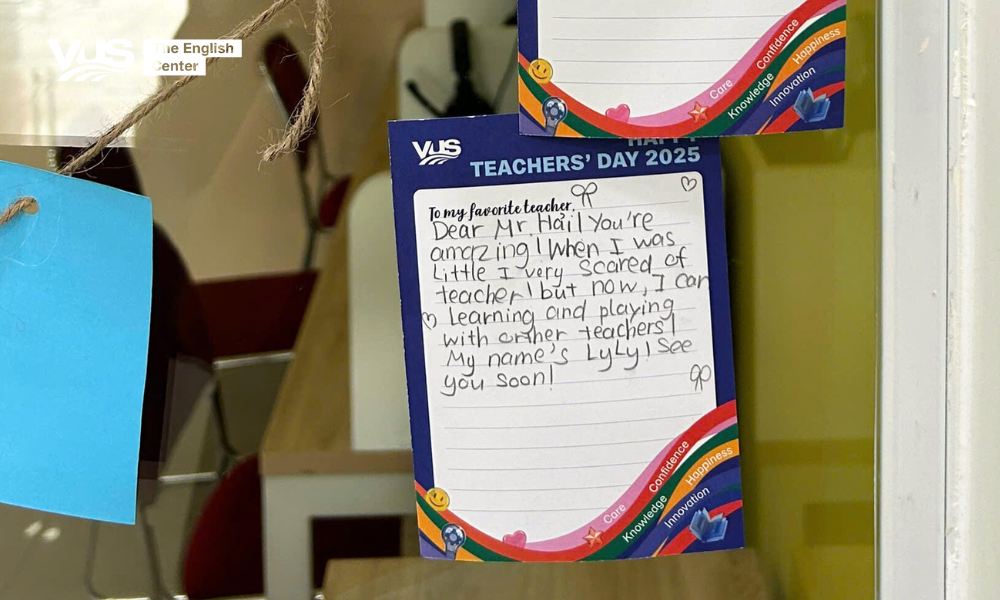 VUS The English
Center
Care Confidence
Knowledge Happiness
Innovation
VUS
HAPPY
TEACHERS' DAY 2025
To my favorite teacher,
Dear Mr. Hai! You're
amazing! When I was
Little I very scared of
teacher! but now, I can
Learning and playing
with orther teachers!
My name's LyLy! See
you soon!
Care Confidence
Knowledge Happiness
Innovation